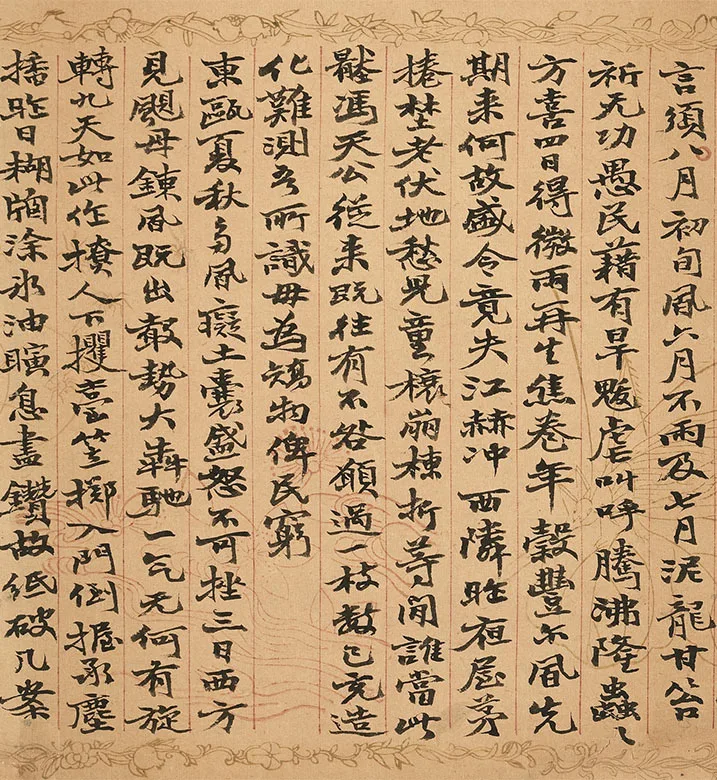 言須八月初旬風六月不雨及七月泥龍甘谷
祈无功愚民藉有旱魃虐叫呼騰沸隆蟲〻
方喜四日得微雨再生焦卷年穀豐尔風先
期来何故盛令竟失江赫冲西隣昨夜屋茅
捲埜老伏地愁児童榱崩棟折等閒誰當此
馮天公從来既往有不咎願過一枝数已充造
化難測吾所識毋為物俾民窮
東甌夏秋多風癡土囊盛怒不可挫三日西方
見颶母錬風既出彀勢大犇馳一气无何有旋
轉九天如此作撩人下攫臺笠擲入門倒握承塵
播昨日糊牖涂水油瞚息盡鑽故紙破几案